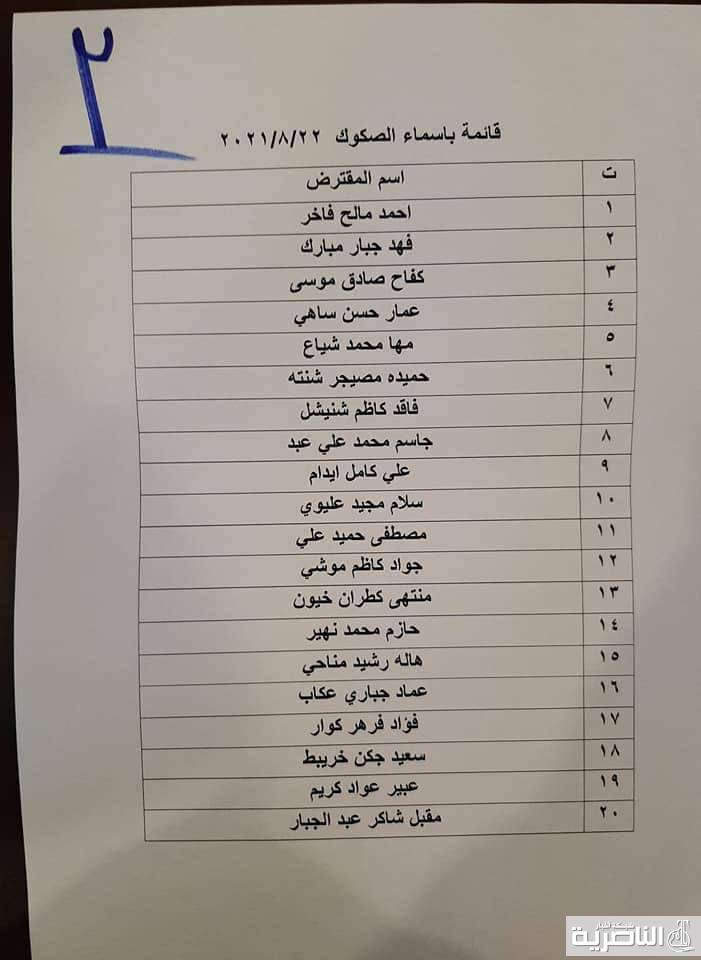 ٢
قائمة باسماء الصكوك ٢٠٢١/٨/٢٢
ت اسم المقترض
١ احمد مالح فاخر
٢ فهد جبار مبارك
٣ كفاح صادق موسى
٤ عمار حسن ساهي
٥ مها محمد شياع
٦ حميده مصيجر شنته
٧ فاقد كاظم شنيشل
٨ جاسم محمد علي عبد
٩ علي كامل ايدام
١٠ سلام مجيد عليوي
١١ مصطفى حميد علي
١٢ جواد كاظم موشي
١٣ منتهى كطران خيون
١٤ حازم محمد نهير
١٥ هاله رشيد مناحي
١٦ عماد جباري عكاب
١٧ فؤاد فرهر كوار
١٨ سعيد جكن خريبط
١٩ عبير عواد كريم
٢٠ مقبل شاكر عبد الجبار
شبكة اخبار
الناصرية